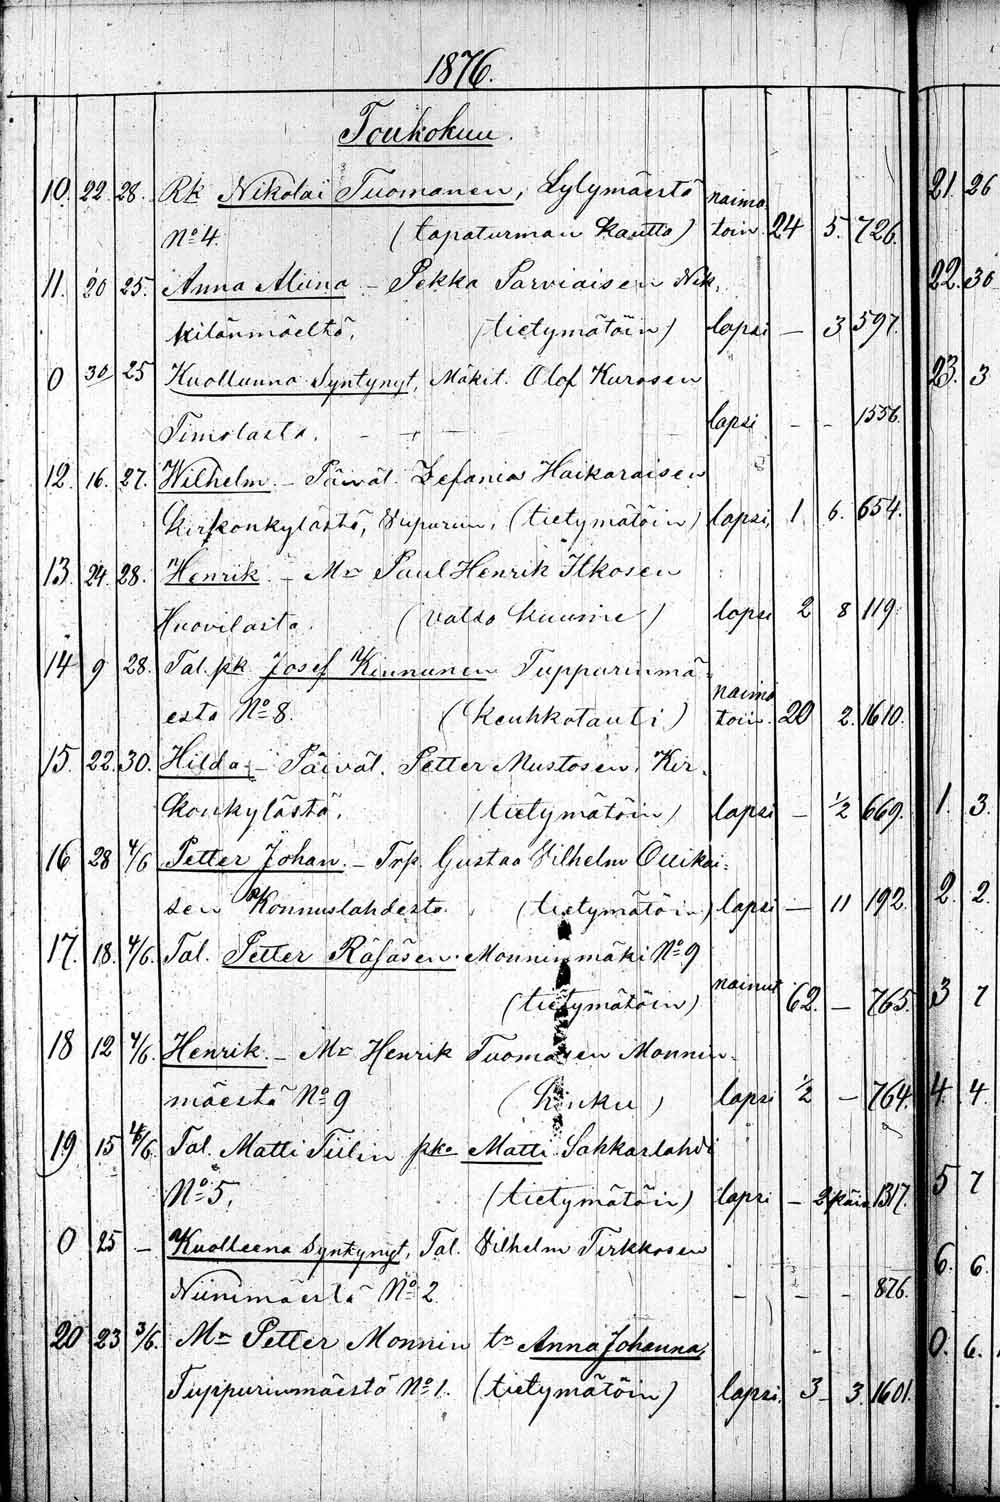 1876.
Toukokuu.
10. 22. 28. Rk Nikolai Tuomanen, Lylymäestä naima-
No 4. (tapaturman kautta) toin. 24 5. 726.
11. 20 25. Anna Miina - Pekka Parviaisen Nik-
kilänmäeltä, (tietymätöin) lapsi - 3 597.
0 30 25 Kuolluna syntynyt, Mäkit. Olof Kurosen
Timolasta. - - lapsi - - 1556.
12. 16. 27. Wilhelm. - Päiväl. Zefanias Haikaraisen
Kirkonkylästä, (tietymätöin) lapsi, 1. 6. 654.
13. 24. 28. Henrik - Mr Paul Henrik Itkosen
Huovilasta. (kuume) lapsi 2 8 119.
14 9 28. Tal. pk. Josef Kinnunen Tuppurinmä-
estä No 8. (Keuhkotauti) naima toin. 20 2. 1610.
15. 22. 30. Hilda - Päiväl. Petter Mustosen, Kir-
konkylästä, (tietymätöin) lapsi - 1/2 669.
16 28 4/6 Petter Johan. - Trp. Gustaa Vilhelm Ollikai-
sen Konnuslahdesta. (tietymätöin) lapsi - 11 192.
17. 18. 4/6. Tal. Petter Räsäsen. Monninmäki No 9
(tietymätöin) nainut 62. - 765.
18 12 4/6. Henrik. - Mr Henrik Tuomasen Monnin-
mäestä No 9 (hinku) lapsi 1/2 - 764.
19 15 4/6. Tal. Matti Tiilin pka Matti Sakkarlahdi
No 5. (tietymätöin) lapsi - 2 päiv. 1317.
0 25 - Kuolleena syntynyt, Tal. Vilhelm Tirkkosen
Niinimäestä No 2. - - - 876.
20 23 3/6. Mr Petter Monnin tr Anna Johanna,
Tuppurinmäestä No 1. (tietymätöin) lapsi. 3 - 3. 1601.
21. 26
22. 30
23. 3
1. 3.
2. 2.
3 7
4. 4.
5 7
6. 6.
0. 6.